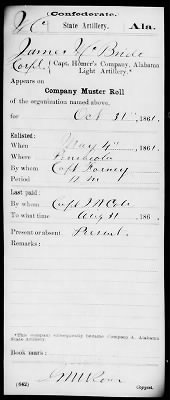 Confederate.
Mc State Artillery. Ala.
James McBride
Corpl, Capt. Homer's Company, Alabama
Light Artillery.*
Appears on
Company Muster Roll
of the organization named above,
for Oct 31st, 1861.
Enlisted:
When May 4th, 1861.
Where Pensacola
By whom Capt Forney
Period 12 m
Last paid:
By whom Capt
To what time Aug 31, 186 .
Present or absent Present
Remarks:
*This company subsequently became Company A, Alabama
State Artillery.
Book mark:
(642) Copyist.